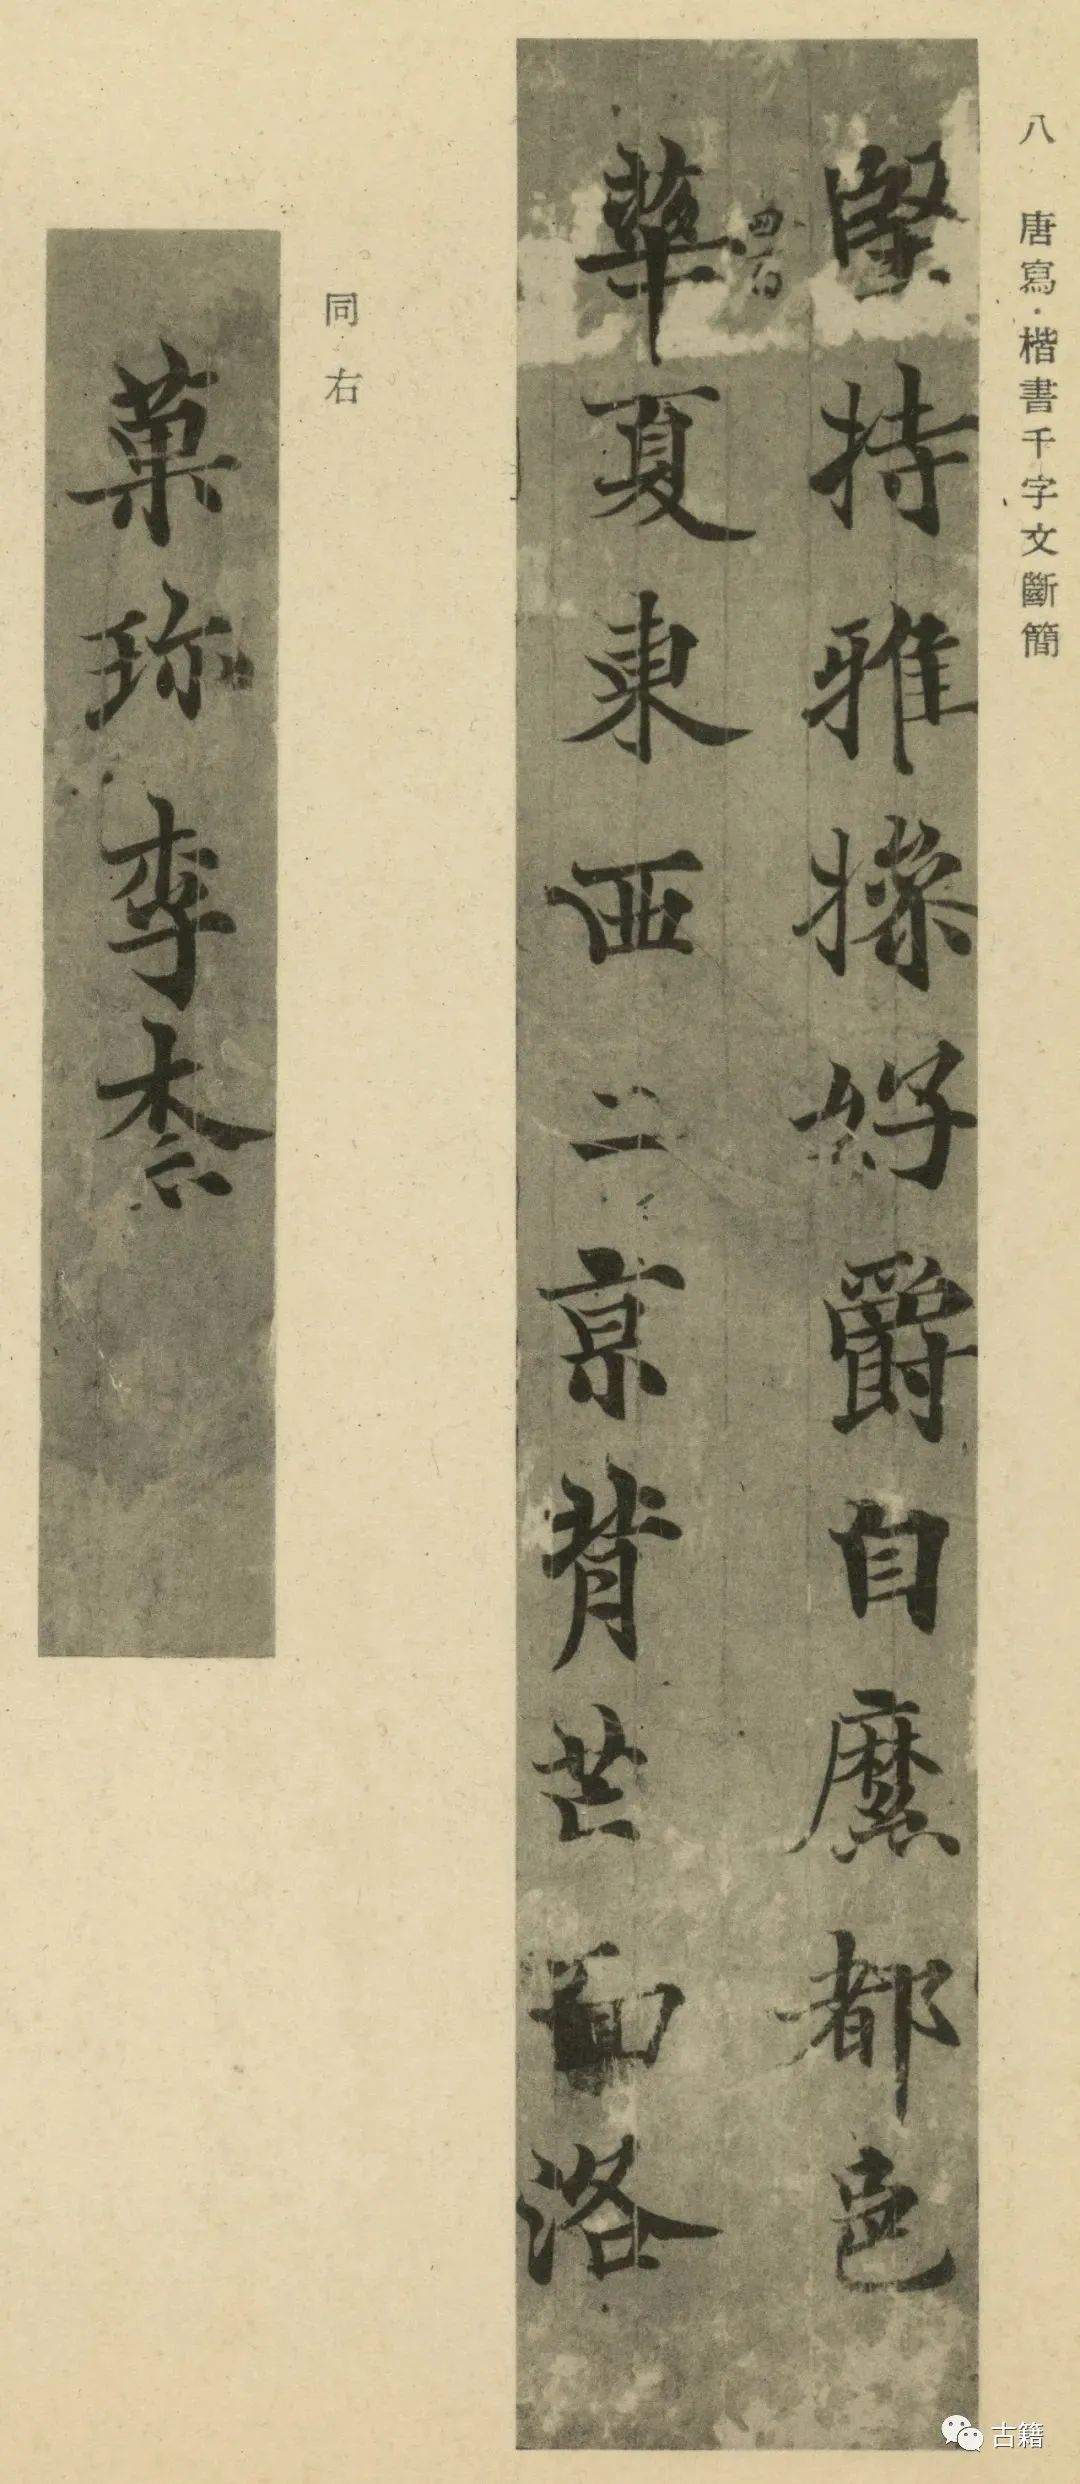 八 唐寫・楷書千字文斷簡
堅持雅操好爵自縻都邑
四百
華夏東西二京背芒面洛
同右
菓珎李柰
古籍